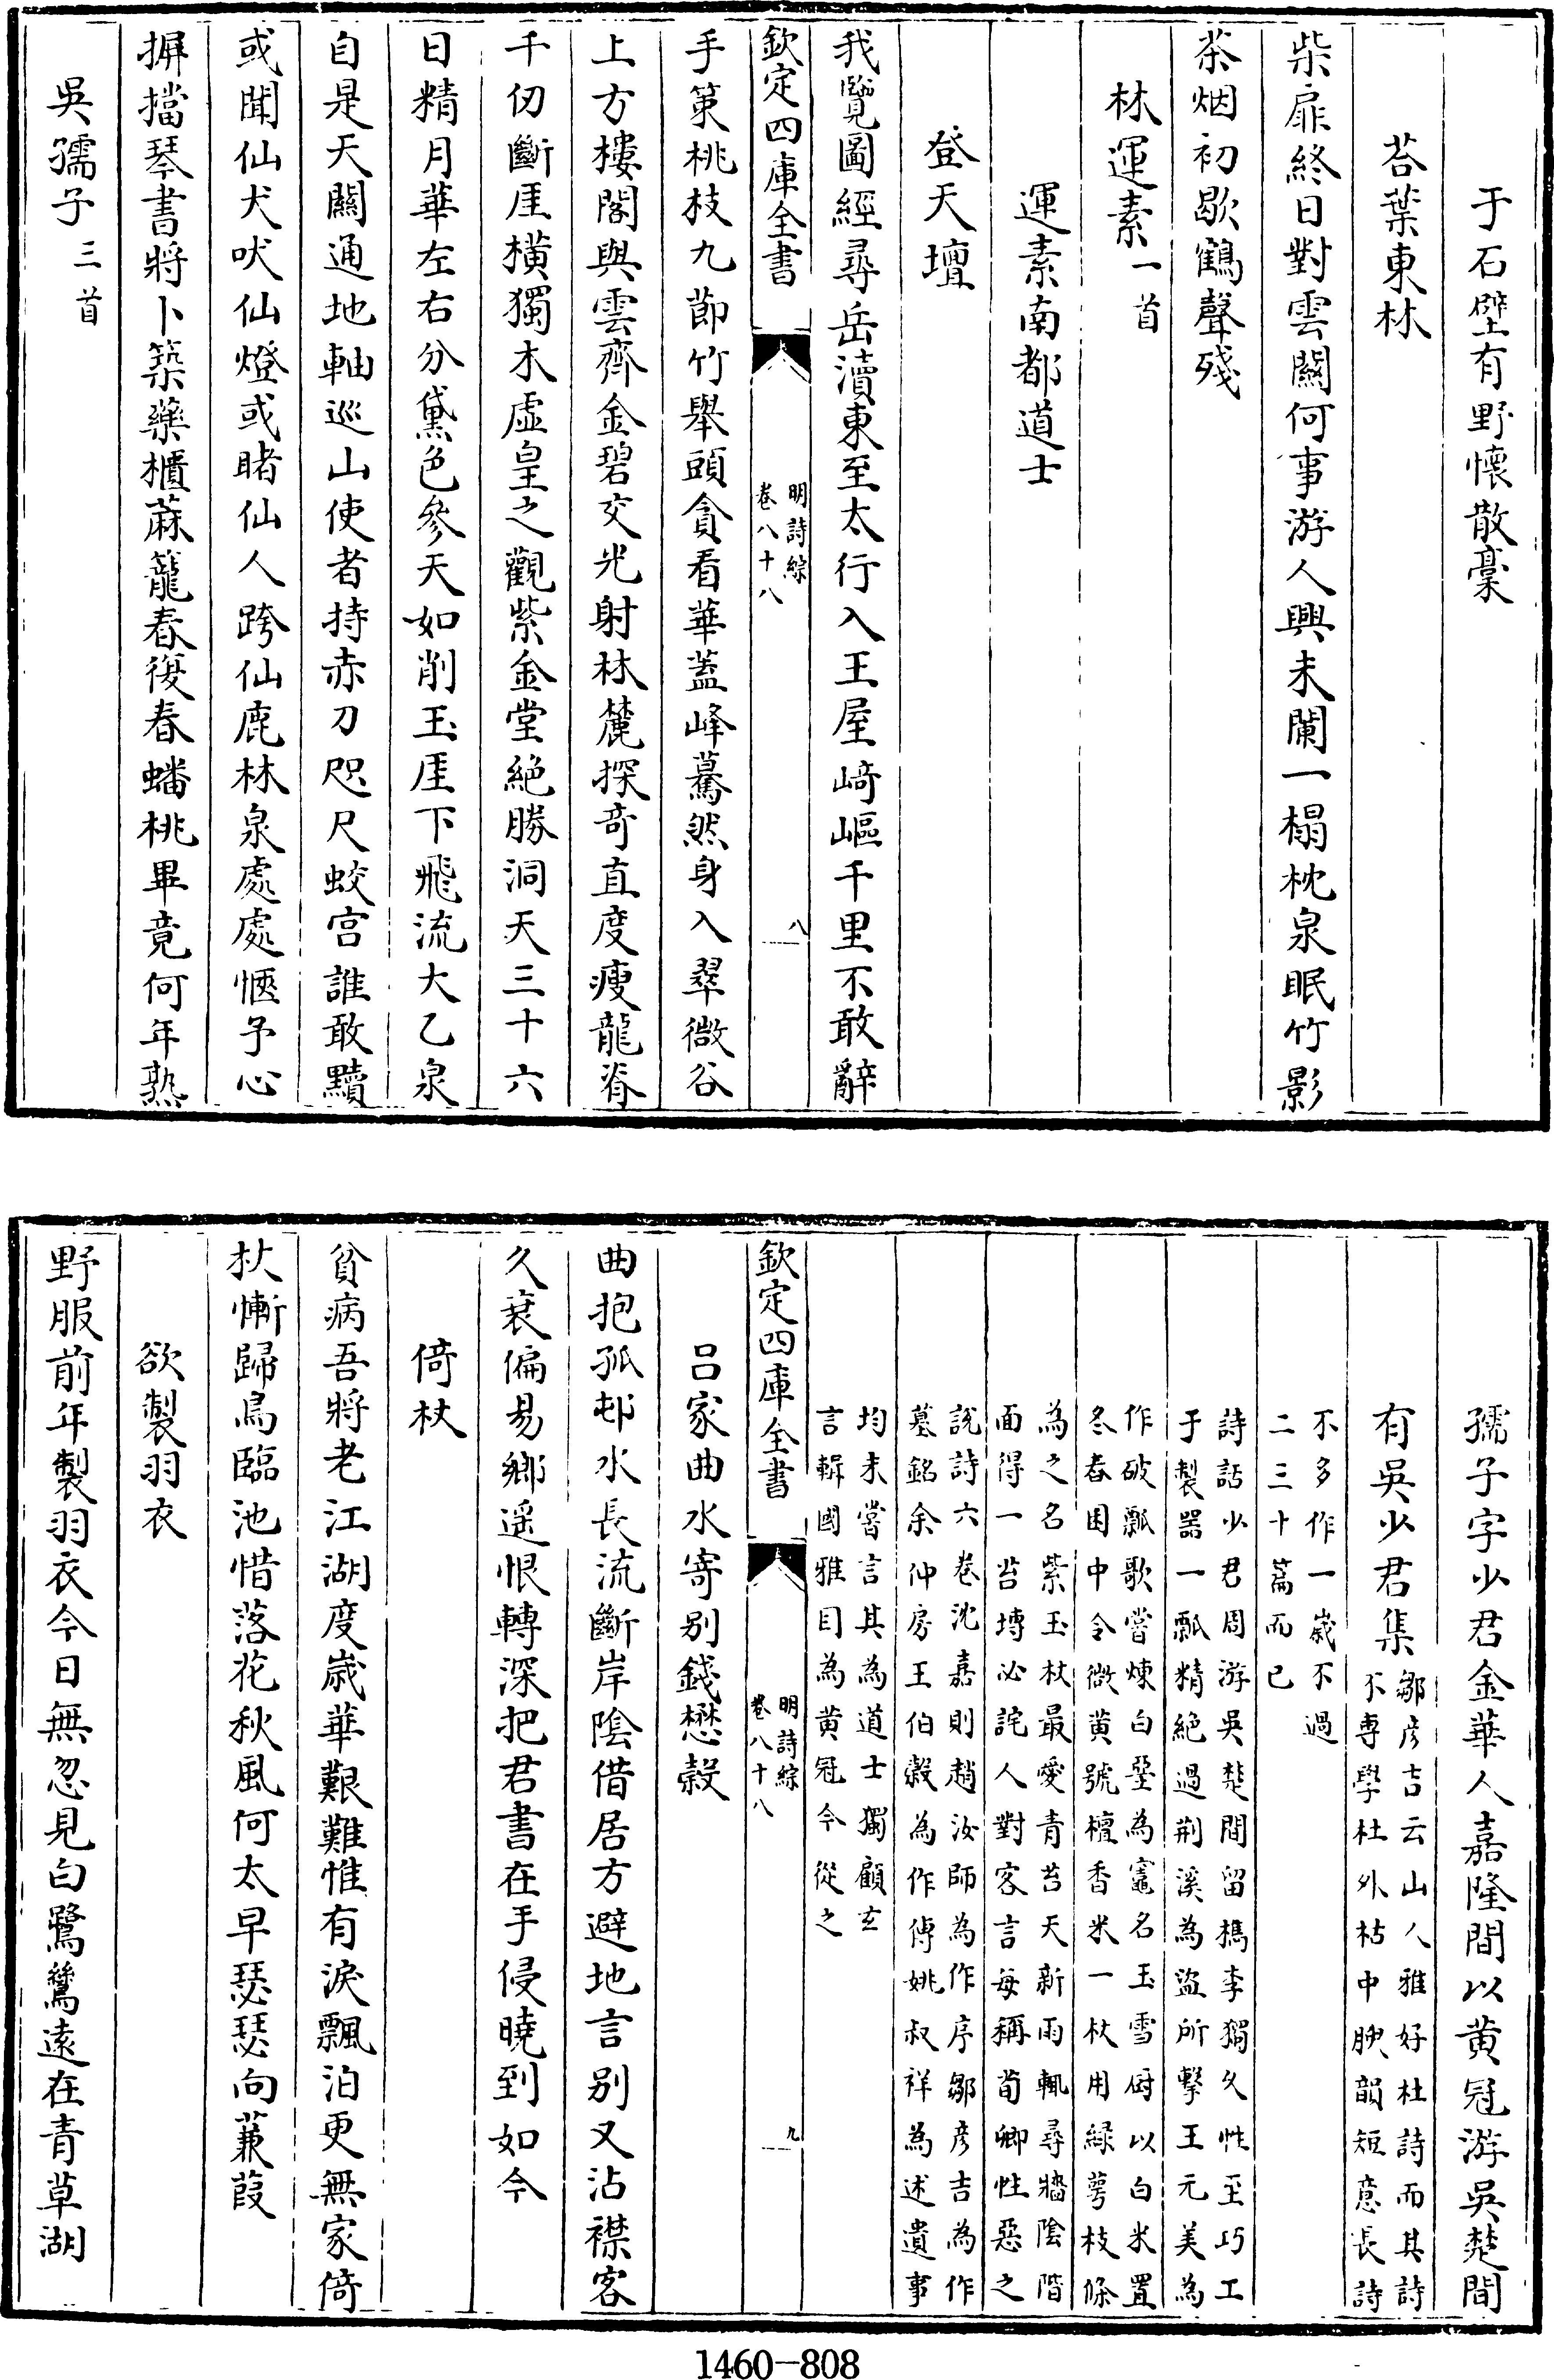 于石壁有野懷散稾
荅葉東林
柴扉終日對雲關何事游人興未闌一榻枕泉眠竹影
茶烟初歇鶴聲殘
林運素一首
運素南都道士
登天壇
我覽圖經尋岳瀆東至太行入王屋崎嶇千里不敢辭
欽定四庫全書
明詩綜
卷八十八
八
手策桃枝九節竹舉頭貪看華蓋峰驀然身入翠微谷
上方樓閣與雲齊金碧交光射林麓探奇直度瘦龍脊
千仞斷厓橫獨木虛皇之觀紫金堂絕勝洞天三十六
日精月華左右分黛色參天如削玉厓下飛流大乙泉
自是天關通地軸巡山使者持赤刀咫尺蛟宫誰敢黷
或聞仙犬吠仙燈或睹仙人跨仙鹿林泉處處愜予心
摒擋琴書將卜築藥櫃蔴籠春復春蟠桃畢竟何年熟
吳孺子三首
孺子字少君金華人嘉隆間以黄冠游吳楚間
有吳少君集
鄒彦吉云山人雅好杜詩而其詩
不專學杜外枯中腴韻短意長詩
不多作一歲不過
二三十篇而已
詩話少君周游吳楚間留檇李獨久性至巧工
于製器一瓢精絕過荆溪為盜所擊王元美為
作破瓢歌嘗煉白堊為竈名玉雪厨以白米置
冬春囷中令微黄號檀香米一杖用綠萼枝條
為之名紫玉杖最愛青苔天新雨輒尋牆陰階
面得一苔塼必詫人對客言每稱荀卿性惡之
說詩六卷沈嘉則趙汝師為作序鄒彦吉為作
墓銘余仲房王伯穀為作傳姚叔祥為述遺事
均未嘗言其為道士獨顧玄
言輯國雅目為黄冠今從之
欽定四庫全書
明詩綜
卷八十八
九
吕家曲水寄别錢懋穀
曲抱孤邨水長流斷岸陰借居方避地言别又沾襟客
久衰偏易鄉遥恨轉深把君書在手侵曉到如今
倚杖
貧病吾將老江湖度歲華艱難惟有淚飄泊更無家倚
杖慚歸鳥臨池惜落花秋風何太早瑟瑟向蒹葭
欲製羽衣
野服前年製羽衣今日無忽見白鷺鷥遠在青草湖
1460-808